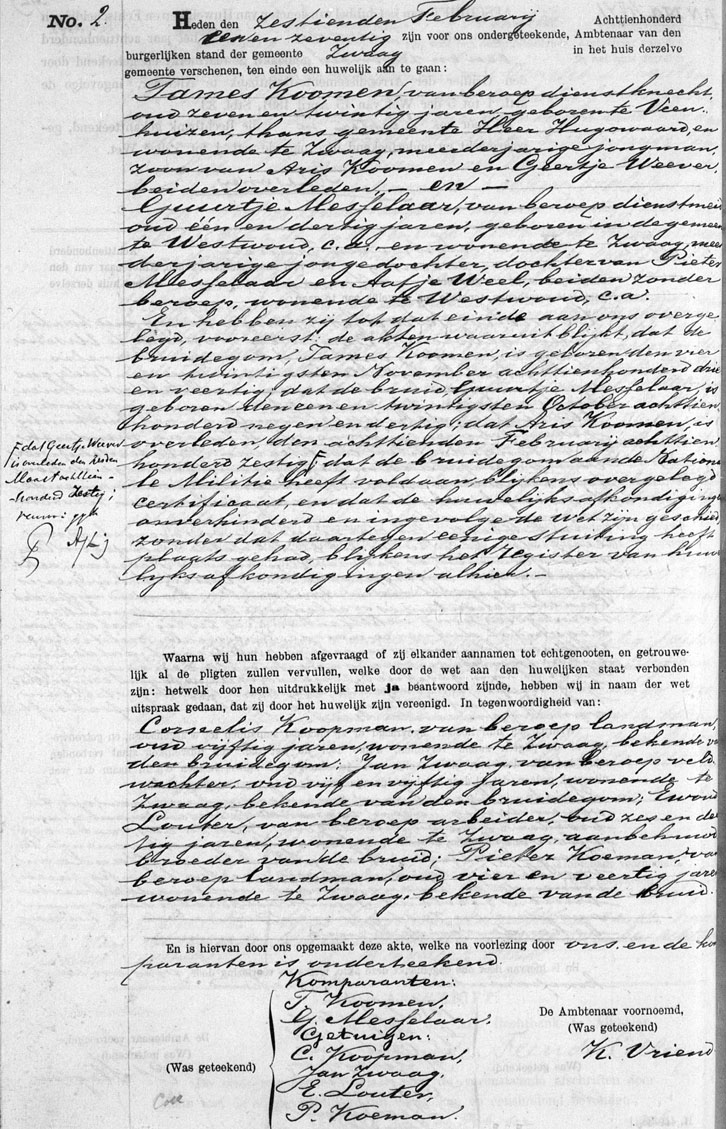 No. 2.
Heden den zestienden Februarij Achttienhonderd
een en zeventig zijn voor ons ondergeteekende, Ambtenaar van den
burgerlijken stand der gemeente Zwaag in het huis derzelve
gemeente verschenen, ten einde een huwelijk aan te gaan:
Tames Koomen, van beroep dienstknecht,
oud zeven en twintig jaren, geboren te Veen-
huizen, thans gemeente Heer Hugowaard, en
wonende te Zwaag, meerderjarige jongman,
zoon van Aris Koomen en Geertje Weever,
beiden overleden, – en –
Guurtje Messelaar, van beroep dienstmei
oud één en dertig jaren, geboren in de gemeen
te Westwoud, c.a., en wonende te Zwaag, meer
derjarige jongedochter, dochter van Pieter
Messelaar en Aafje Weel, beiden zonder
beroep, wonende te Westwoud, c.a.
En hebben zij tot dat einde aan ons overge
legd, vooreerst: de akten waaruit blijkt, dat de
bruidegom, Tames Koomen, is geboren den vier
en twintigsten November achttienhonderd drie
en veertig; dat de bruid, Guurtje Messelaar, is
geboren den een en twintigsten October achttien
honderd negen en dertig; dat Aris Koomen, is
overleden, den achttienden Februarij achttien
honderd zestig; dat de bruidegom aan de Nation
le Militie heeft voldaan, blijkens overgelegd
certificaat, en dat de huwelijks afkondiginge
onverhinderd en ingevolge de wet zijn geschied
zonder dat daartegen eenige stuiting heeft
plaats gehad, blijkens het Register van huwe
lijks afkondigingen alhier. –
dat Geertje Weever
is overleden den
Maart achttien-
honderd zestig;
Waarna wij hun hebben afgevraagd of zij elkander aannamen tot echtgenooten, en getrouwe-
lijk al de pligten zullen vervullen, welke door de wet aan den huwelijken staat verbonden
zijn: hetwelk door hen uitdrukkelijk met ja beantwoord zijnde, hebben wij in naam der wet
uitspraak gedaan, dat zij door het huwelijk zijn vereenigd. In tegenwoordigheid van:
Cornelis Koopman, van beroep landman,
oud vijftig jaren, wonende te Zwaag, bekende va
den bruidegom; Jan Zwaag, van beroep veld
wachter, oud vijf en vijftig jaren, wonende te
Zwaag, bekende van den bruidegom; Ewoud
Louter, van beroep arbeider, oud zes en der
tig jaren, wonende te Zwaag, aanbehuwd
broeder van de bruid; Pieter Koeman, va
beroep landman, oud vier en veertig jaren
wonende te Zwaag, bekende van de bruid.
En is hiervan door ons opgemaakt deze akte, welke na voorlezing door ons en de kom
paranten is onderteekend.
Komparanten:
T. Koomen,
G. Messelaar.
Getuigen:
C. Koopman,
Jan Zwaag,
E. Louter,
P. Koeman.
(Was geteekend)
De Ambtenaar voornoemd,
(Was geteekend)
K. Vriend